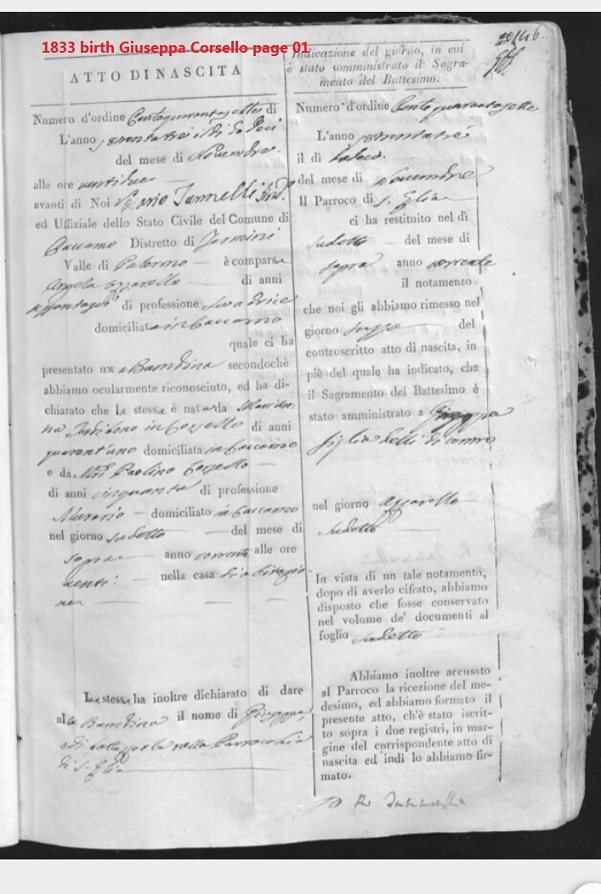 1833 birth Giuseppa Corsello page 01
146.
ATTO DI NASCITA
Numero d'ordine Centoquarantasette
L'anno trentatré il dì dieci
del mese di Novembre
alle ore ventidue
avanti di Noi Iannelli
ed Uffiziale dello Stato Civile del Comune di
Caccamo Distretto di Termini
Valle di Palermo è comparsa
Angela Azzarello di anni
di professione Levadrice
domiciliata in Caccamo
quale ci ha
presentato una Bambina secondochè
abbiamo ocularmente riconosciuto, ed ha di-
chiarato che la stessa è nata da
in Corsello di anni
quarantuno domiciliata in Caccamo
e da Paolino Corsello
di anni cinquanta di professione
domiciliato in Caccamo
nel giorno sudetto del mese di
sopra anno corrente alle ore
venti nella casa di abitazio-
ne
La stessa ha inoltre dichiarato di dare
alla Bambina il nome di Giuseppa
Parrocchia
di S. Elia
Indicazione del giorno, in cui
è stato somministrato il Sagra-
mento del Battesimo.
Numero d'ordine Centoquarantasette
L'anno trentatré
il dì
del mese di novembre
Il Parroco di S. Elia
ci ha restituito nel dì
sudetto del mese di
sopra anno corrente
il notamento
che noi gli abbiamo rimesso nel
giorno del
controscritto atto di nascita, in
piè del quale ha indicato, che
il Sagramento del Battesimo è
stato amministrato a Giuseppa
figlia delli di contro
nel giorno
sudetto
In vista di un tale notamento,
dopo di averlo cifrato, abbiamo
disposto che fosse conservato
nel volume de' documenti al
foglio sudetto
Abbiamo inoltre accusato
al Parroco la ricezione del me-
desimo, ed abbiamo formato il
presente atto, ch'è stato iscrit-
to sopra i due registri, in mar-
gine del corrispondente atto di
nascita ed indi lo abbiamo fir-
mato.